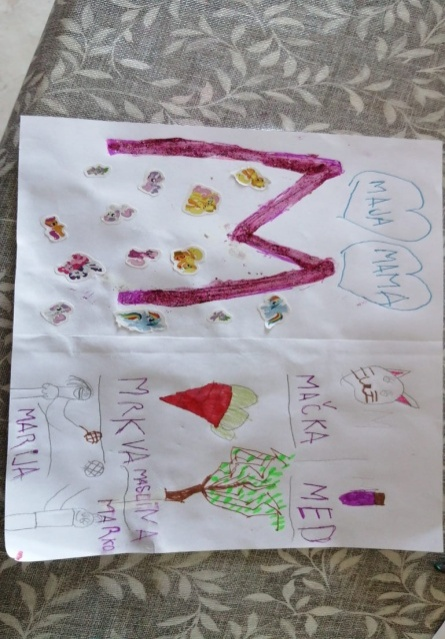 MAJA
MAMA
M
MAČKA
MED
MRKVA
MASLINA
MARIJA
MARKO